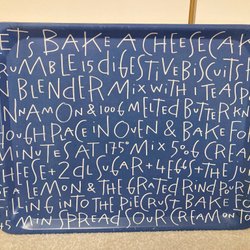 ET'S BAKE A CHEESECA
RUMBLE 15 DIGESTIVE BISCUITS
N BLENDER MIX WITH 1 TEASP
INAMON & 100G MELTED BUTTER KN
OUGH PLACE IN OVEN & BAKE FO
MINUTES AT 175° MIX 500G CREAM
HEESE + 2DL SUGAR + 4 EGGS + THE JU
F A LEMON & THE GRATED RIND POUR
LLING INTO THE PIECRUST BAKE FO
5 MIN SPREAD SOUR CREAM ON T